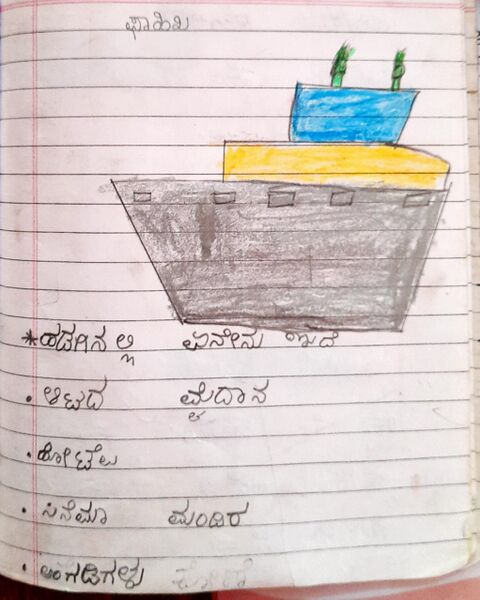 *ಹಡಗಿನಲ್ಲಿ ಏನೇನು ಇದೆ
. ಆಟದ ಮೈದಾನ
. ಹೋಟೆಲ
. ಸಿನೆಮಾ ಮಂದಿರ
. ಅಂಗಡಿಗಳು